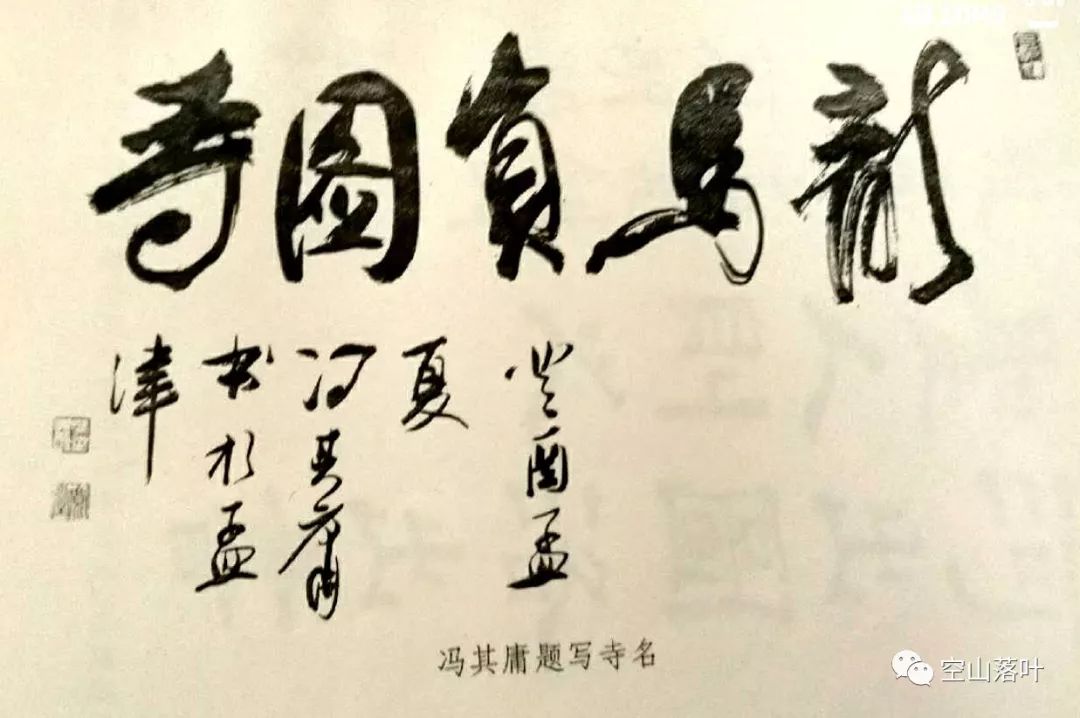 龍馬負圖寺
癸酉孟
夏
馮其庸
书於孟
津
冯其庸题写寺名
空山落叶